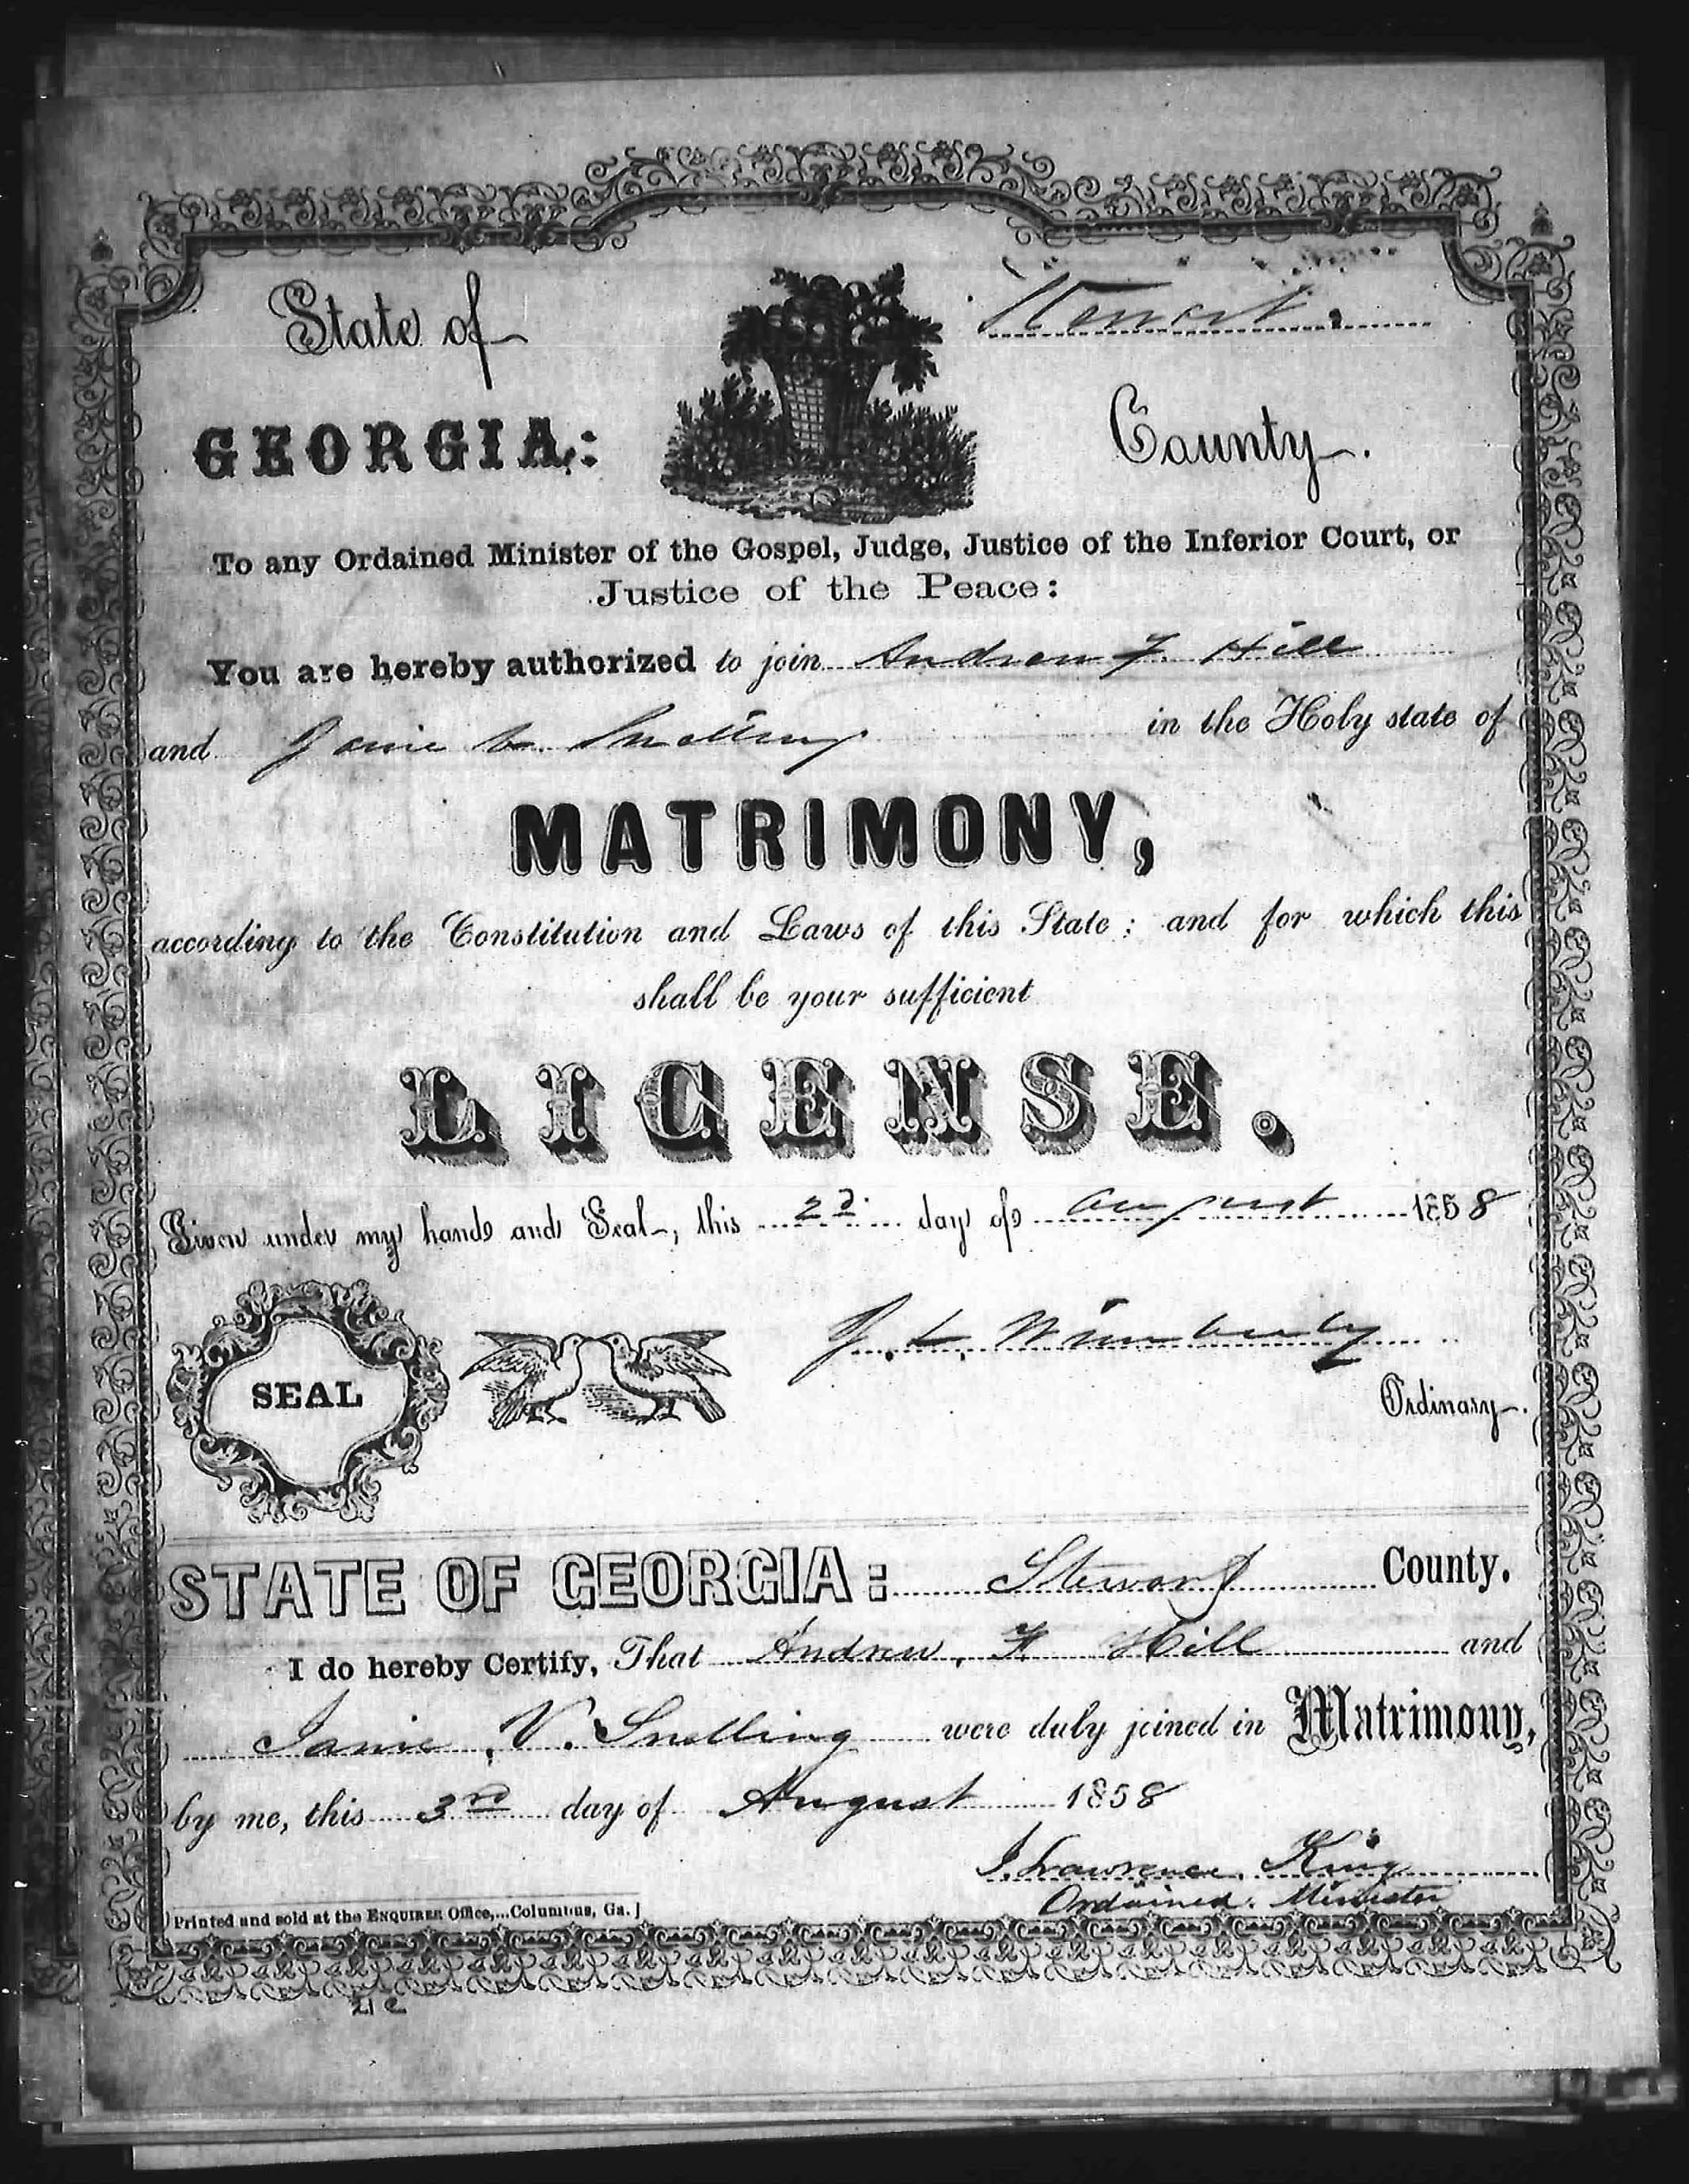 State of
Stewart
GEORGIA:
County.
To any Ordained Minister of the Gospel, Judge, Justice of the Inferior Court, or
Justice of the Peace:
You are hereby authorized to join Andrew F. Hill
and Janie V. Snelling in the Holy state of
MATRIMONY,
according to the Constitution and Laws of this State: and for which this
shall be your sufficient
LICENSE.
Given under my hand and Seal, this 2d day of august 1858
SEAL
J. L. Wimberly
Ordinary.
STATE OF GEORGIA: Stewart County.
I do hereby Certify, That Andrew, F. Hill and
Janie, V. Snelling were duly joined in Matrimony,
by me, this 3rd day of August 1858
J. Lawrence. King
Ordained. Minister
Printed and sold at the ENQUIRER Office,...Columbus, Ga.]